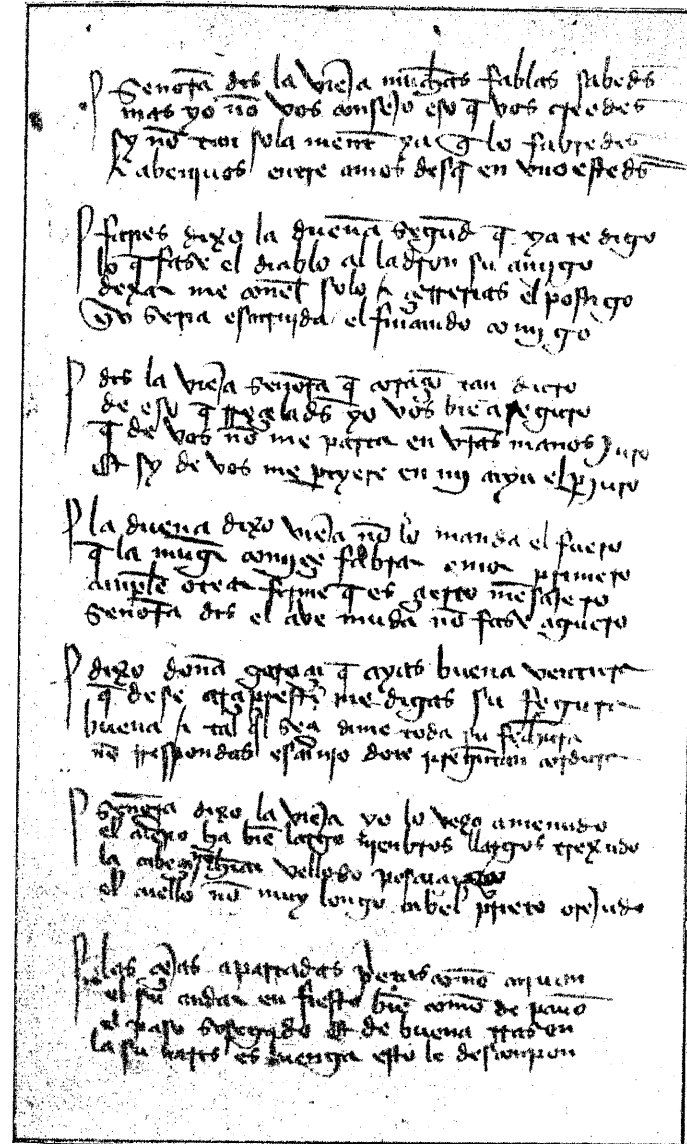 Señora diz la vieja muchas fablas sabedes
mas yo no vos consejo eso q̃ vos creedes
sy non tan sola ment ya q̃ lo fabredes
E abenjrvos entre amos desq̃ en vno estedes
farjes dixo la dueña segund q̃ ya te digo
lo q̃ fase el diablo al ladron su amigo
dexar me con el solo E çerrarias el postigo
yo seria escarnida el fincando comigo
diz la vieja señora q̃ coraçon tan duro
de eso q̃ rreçelads yo vos bien aseguro
q̃ de vos no me parta en vr̃as manos juro
et sy de vos me partyere en mj caya el perjuro
la dueña dixo vieja non lo manda el fuero
q̃ la muger comiençe fablar amor primero
cunple otear firme q̃ es çierto mensajero
señora diz el ave muda non fase aguero
dixo doña garoça q̃ ayas buena ventura
q̃ de ese arçipreste me digas su figura
buena E tal qual sea dime toda su fechura
non rrespondas escarnio do te preguntan cordura
señora dixo la vieja yo lo vejo amenudo
el cuerpo ha bien largo mjenbros largos trexudo
la cabeça non chica velloso pescoçudo
el cuello non muy longo cabel prieto orejudo
las çejas apartadas prietas como carvon
el su andar enfiesto bien como de pauon
el paso sosegado et de buena rrason
la su nariz es luenga esto le desconpon